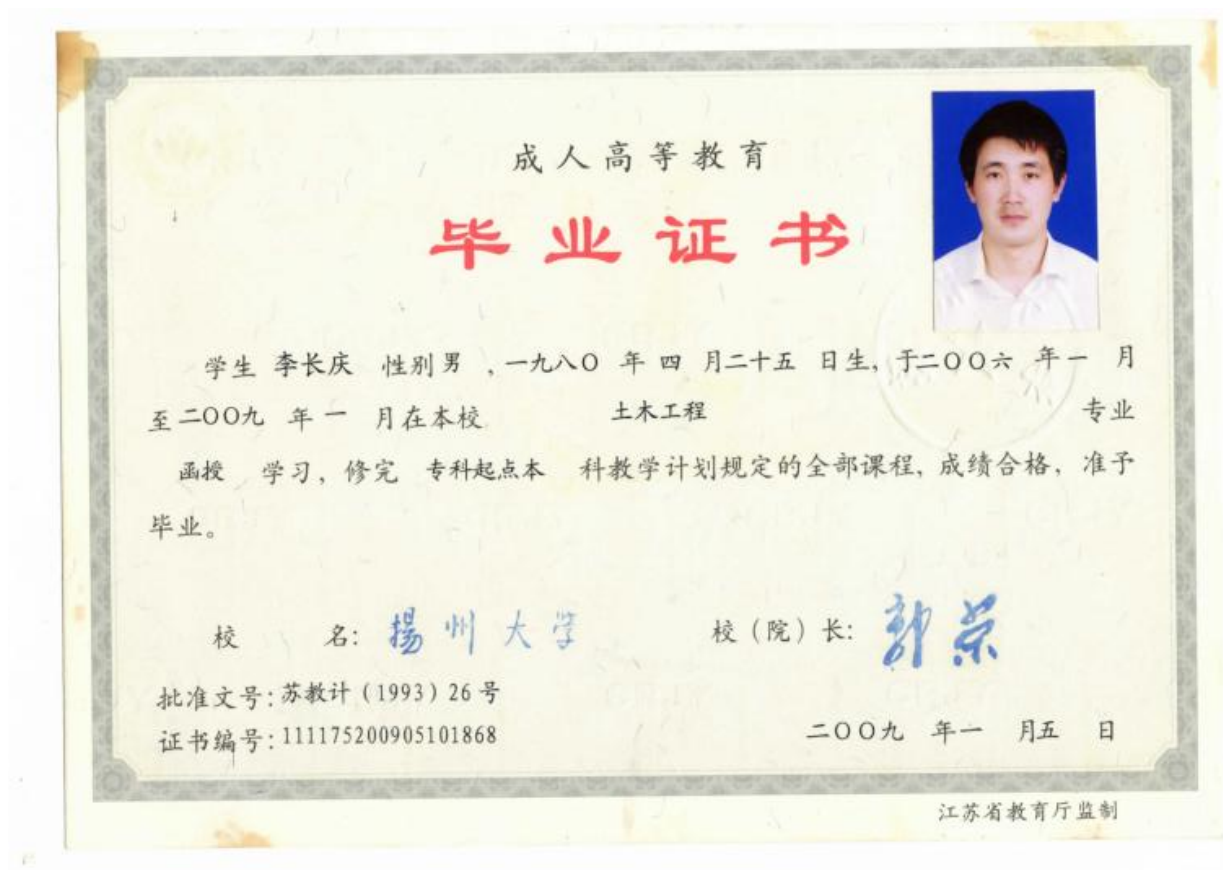 成人高等教育
毕业证书
学生 李长庆 性别 男 ，一九八〇 年 四 月二十五 日生，于二〇〇六 年 一 月
至二〇〇九 年 一 月在本校 土木工程 专业
函授 学习，修完 专科起点本 科教学计划规定的全部课程，成绩合格，准予
毕业。
校 名：揚州大学 校（院）长：郭荣
批准文号：苏教计（1993）26号
证书编号：111175200905101868
二〇〇九 年 一 月五 日
江苏省教育厅监制